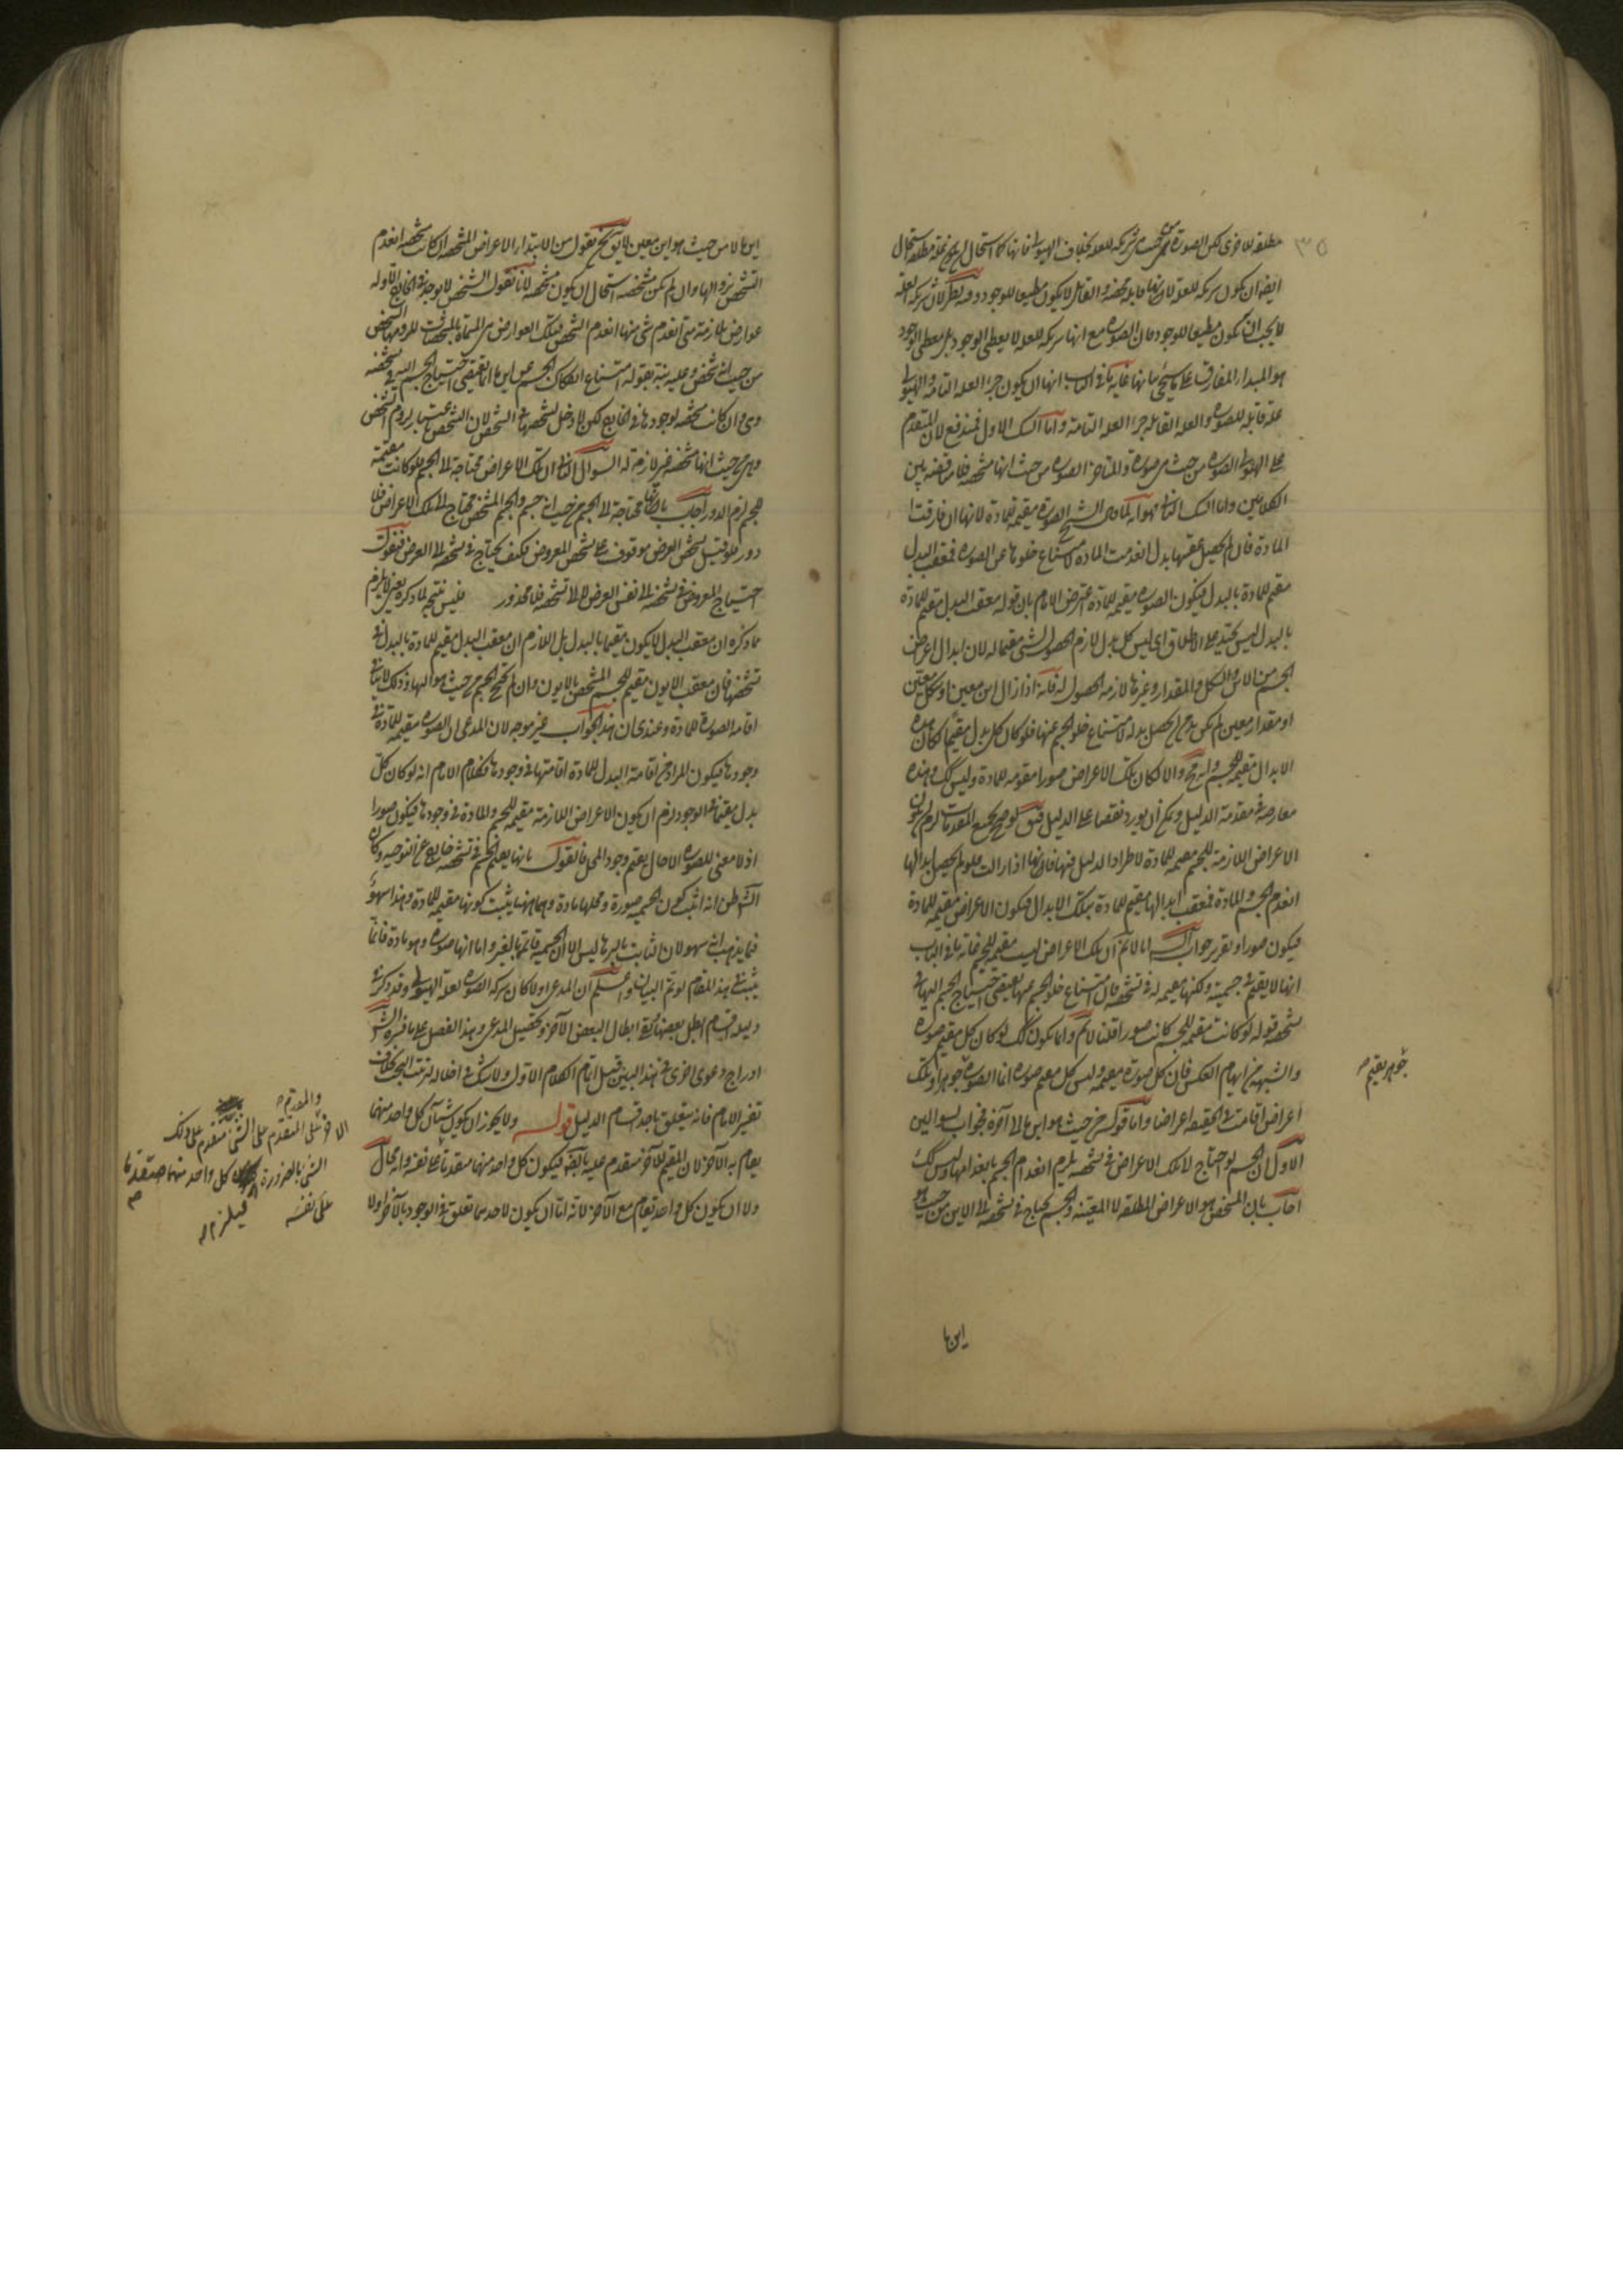 مطلقه للاخرى لكن الصورة من حيث هى شريكه للعله بخلاف الهيولى فانها كما استحال ان يكون علة مطلقه استحال
ايضا ان يكون شريكه للعله لانها قابله محضه والقابل لا يكون معطيا للوجود وفيه نظر لان شريكه العله
لا يجب ان يكون معطيا للوجود فان الصوره مع انها شريكه للعله لا يعطى الوجود بل معطى الوجود
هو المبدا المفارق على ما سيجئ بيانها غاية ما فى الباب انها ان يكون جزء العله التامه والهيولى
علة قابله للصوره والعله القابله جزء العله التامة واما الشك الاول فمندفع لان المتقدم
على الهيولى الصوره من حيث هى صورة والمتاخر الصوره من حيث انها مشخصه فلا مناقضه بين
الكلامين واما الشك الثانى فهو انه لما قال الشيخ الصورة مقيمه للمادة لانها ان فارقت
المادة فان لم يحصل عقيبها بدل انعدمت المادة لامتناع خلوها عن الصوره فمعقب البدل
مقيم للمادة بالبدل فيكون الصوره مقيمه للمادة اعترض الامام بان قوله معقب البدل مقيم للمادة
بالبدل ليس بجيد على الاطلاق اى ليس كل بدل لازم الحصول لشئ مقيما له لان ابدال اعراض
الجسم من الاين والشكل والمقدار وغيرها لازمه الحصول له فانه اذا زال اين معين او شكل معين
او مقدار معين لم يكن بد من ان يحصل بدله لامتناع خلو الجسم عنها فلو كان كل بدل مقيما لكان هذه
الابدال مقيمه للجسم وانه مح والا لكان تلك الاعراض صورا مقومه للمادة وليس كك وهذه
معارضه فى مقدمة الدليل ويمكن ان يورد نقضا على الدليل فيق لو صح جميع المقدمات لزم ان يكون
الاعراض اللازمه للجسم مقيمه للمادة لاطراد الدليل فيها فانها اذا زالت فلو لم يحصل ابدالها
انعدم الجسم والمادة فمعقب ابدالها مقيم للمادة بتلك الابدال فيكون الاعراض مقيمه للمادة
فيكون صورا وتقرير جواب الشه انا لا نم ان تلك الاعراض ليست مقيمه للجسم غاية ما فى الباب
انها لا يقيمه فى جسميته ولكنها مقيمه له فى تشخصه فان امتناع خلو الجسم عنها يقتضى احتياج الجسم اليها فى
تشخصه قوله لو كانت مقيمه للجسم كانت صورا قلنا لا نم وانما يكون كك لو كان كل مقيم صوره
والشبهه من ايهام العكس فان كل صورة مقيمه وليس كل مقيم صوره انما الصوره جوهر وتلك
جوهر يقيم صح
اعراض اقامت فى الحقيقه اعراضا واما قوله من حيث هو اين ما لا آخره فجواب لسوالين
الاول ان الجسم لو احتاج لا تلك الاعراض فى تشخصه يلزم انعدام الجسم بانعدامها وليس كك
اجاب بان المشخص هو الاعراض المطلقه لا المعينه والجسم يحتاج فى تشخصه الى الاين من حيث هو
اين ما
اين ما لا من حيث هو اين معين لا يق نحن نقول من الابتداء الاعراض المشخصه ان كانت مشخصه انعدم
التشخص بزوالها وان لم يكن مشخصه استحال ان يكون مشخصه لانا نقول الشخص لا يوجد فى الخارج الا وله
عوارض ملازمة متى انعدم شئ منها انعدم الشخص فتلك العوارض هى المسماة بالمشخصات للزومها الشخص
من حيث انه شخص وعليه نبه بقوله امتناع انفكاك الجسم عن اين ما انما يقتضى احتياج الجسم اليه فى تشخصه
وهى وان كانت مشخصه لوجودها فى الخارج لكن لا دخل لشخصها فى التشخص لان التشخص باعتبار لزوم الشخص
وهى من حيث انها مشخصه غير لازمه له السوال الثانى ان تلك الاعراض محتاجة الى الجسم فلو كانت مقيمه
للجسم لزم الدور اجاب بانها محتاجة الى الجسم من حيث انه جسم والجسم المشخص محتاج الى تلك الاعراض فلا
دور فلو قيل تشخص العرض موقوف على تشخص المعروض فكيف يحتاج فى تشخصه الى العرض فنقول
احتياج المعروض فى تشخصه الى نفس العرض لا الى تشخصه فلا محذور فليس نتيجه لما ذكره يعنى لا يلزم
مما ذكره ان معقب البدل لا يكون مقيما بالبدل بل اللازم ان معقب البدل مقيم للمادة بالبدل فى
تشخصها فان معقب الايون مقيم للجسم المشخص بالايون وان لم يحتج الجسم من حيث هو اليها وذلك لا ينافى
اقامة الصورة للمادة وعندى ان هذا الجواب غير موجه لان المدعى ان الصوره مقيمه للمادة فى
وجودها فيكون المراد من اقامة البدل للمادة اقامتها فى وجودها فكلام الامام انه لو كان كل
بدل مقيما فى الوجود لزم ان يكون الاعراض اللازمة مقيمه للجسم والمادة فى وجودها فيكون صورا
اذ لا معنى للصوره الا حال يقيم وجود المحل فالقول بانها يقيم الجسم فى تشخصه خارج عن التوجيه وكان
الش ظن انه اثبت كون الجسميه صورة ومحلها مادة وههنا يثبت كونها مقيمه للمادة وهذا سهو
فيما يذهب انه سهو لان الثابت بالبرهان ليس الا ان الجسميه قائمة بالغير واما انها صوره وهو مادة فانما
يثبت فى هذا المقام لو تم البيان واعلم ان المدعى اولا كان شركه الصوره لعلة الهيولى وقد ذكر فى
دليله اقسام ابطل بعضها وبقى ابطال البعض الاخر وتحصيل المدعى وهذا الفصل على ما فسره الش
ادراج دعوى اخرى فى هذا البين قبل اتمام الكلام الاول ولا شك فى اخلاله بترتيب البحث بخلاف
تفسير الامام فانه يتعلق باحد اقسام الدليل قوله ولا يجوز ان يكون شيآن كل واحد منهما
يقام به الاخر لان المقيم للاخر متقدم عليه بالضرورة فيكون كل واحد منهما متقدما على نفسه وانه محال
ولا ان يكون كل واحد يقام مع الآخر لانه اما ان يكون لاحدهما تعلق فى الوجود بالآخر او لا
والمقدم
الاخر على المتقدم على الشئ متقدم على ذلك
الشئ بالضرورة كل واحد منهما متقدما
على نفسه فيلزم